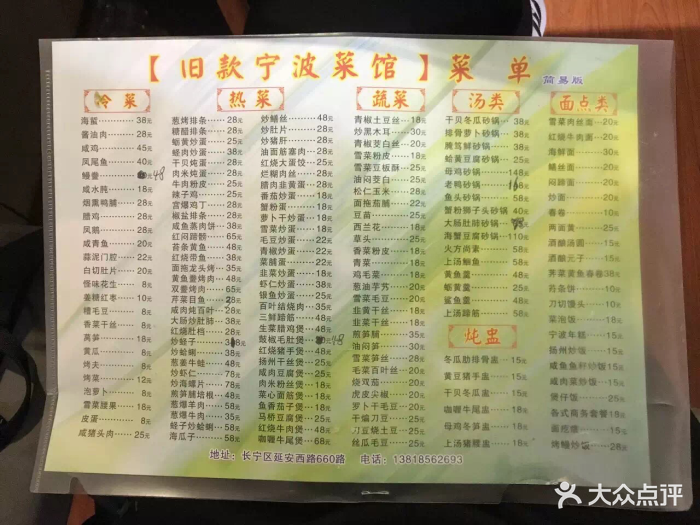 【旧款宁波菜馆】菜 单 简易版
冷 菜
海蜇 38元
酱油肉 28元
咸鸡 45元
凤尾鱼 40元
鳗鲞 48
咸水肫 18元
烟熏鸭脯 28元
腊鸡 28元
凤鹅 28元
咸青鱼 20元
蒜泥门腔 22元
白切肚片 20元
怪味花生 8元
姜糖红枣 10元
糟毛豆 8元
香菜干丝 8元
莴笋 18元
黄瓜 8元
烤夫 8元
烤菜 12元
泡萝卜 8元
雪菜腰果 18元
皮蛋 8元
咸猪头肉 25元
热 菜
葱烤排条 28元
糖醋排条 28元
蛎黄炒蛋 25元
蛤肉炒蛋 38元
干贝炖蛋 28元
肉米炖蛋 20元
牛肉粉皮 25元
辣子鸡 25元
宫爆鸡丁 20元
椒盐排条 28元
咸鱼蒸肉饼 30元
红闷蹄膀 65元
苔条黄鱼 48元
红烧带鱼 38元
面拖龙头烤 35元
黄鱼鲞烤肉
双鲞烤肉 65元
芹菜目鱼 28元
咸肉炖百叶 28元
大肠炒肚肺 28元
红烧肚裆 28元
炒蛏子
炒蛤蜊 38元
葱姜牛蛙 48元
炒虾仁 78元
炒海螺片 78元
煎算脯培根
葱爆羊肉 35元
葱爆牛肉 35元
蛏子炒蛤蜊 58元
海瓜子 58元
炒鳝丝 48元
炒肚片 28元
炒猪肝 28元
油面筋塞肉 28元
红烧大蛋饺 25元
烂糊肉丝 28元
腊肉韭黄蛋 28元
番茄炒蛋 18元
蟹粉蛋 20元
萝卜干炒蛋 18元
雪菜炒蛋 18元
毛豆炒蛋 22元
菜脯蛋 22元
韭菜炒蛋 18元
虾仁炒蛋 38元
银鱼炒蛋 25元
百叶结烧肉 35元
三鲜蹄筋 48元
生菜腊鸡煲 48元
豉椒毛肚煲 48
红烧猪手煲 48元
扬州干丝煲 25元
咸肉豆腐煲 25元
肉米粉丝煲 18元
菜心面筋煲 18元
鱼香茄子煲 18元
马桥豆腐煲 25元
红烧牛肉煲 58元
咖喱牛尾煲 58元
蔬 菜
青椒土豆丝 18元
炒黑木耳 30元
青椒茭白丝 18元
雪菜粉皮 18元
雪菜豆板酥 25元
油闷茭白 25元
松仁玉米 28元
面拖茄脯 18元
豆苗 25元
西兰花 18元
草头 25元
香菜粉皮 15元
青菜 15元
鸡毛菜 18元
葱油芋艿 20元
雪菜毛豆 20元
韭黄干丝 20元
韭菜干丝 18元
煎笋脯 35元
油闷笋 30元
雪菜笋丝 28元
毛菜百叶丝 20元
烧双茄 20元
虎皮尖椒 20元
罗卜干毛豆 20元
干煸刀豆 20元
刀豆烧土豆 20元
丝瓜毛豆 25元
汤类
干贝冬瓜砂锅 38元
排骨萝卜砂锅 38元
腌笃鲜砂锅 38元
蛤黄豆腐砂锅 38元
母鸡砂锅
老鸭砂锅 168
鱼头砂锅
蟹粉狮子头砂锅 40元
大肠肚肺砂锅
海蟹豆腐砂锅
火方尚素 58元
上汤鮰鱼 58元
黄鱼羹 48元
蛎黄羹 25元
鲨鱼羹 48元
上汤蹄筋 58元
炖盅
冬瓜肋排骨盅 15元
黄豆猪手盅 15元
干贝冬瓜盅 15元
咖喱牛尾盅 30元
母鸡冬笋盅 15元
上汤猪腰盅 15元
面点类
雪菜肉丝面 20元
红烧牛肉面 20元
海鲜面 30元
鳝丝面 20元
闷蹄面 20元
炒面 20元
春卷 10元
两面黄 25元
酒酿汤圆 15元
酒酿元子 15元
荠菜黄鱼春卷 38元
苔条饼 10元
刀切馒头 10元
菜泡饭 18元
宁波年糕 15元
扬州炒饭 15元
咸鱼鱼籽炒饭 20元
咸肉菜炒饭 15元
煲仔饭 20元
各式商务套餐 18元
面疙瘩 15元
烤鳗炒饭 28元
地址：长宁区延安西路660路 电话：13818562693
大众点评